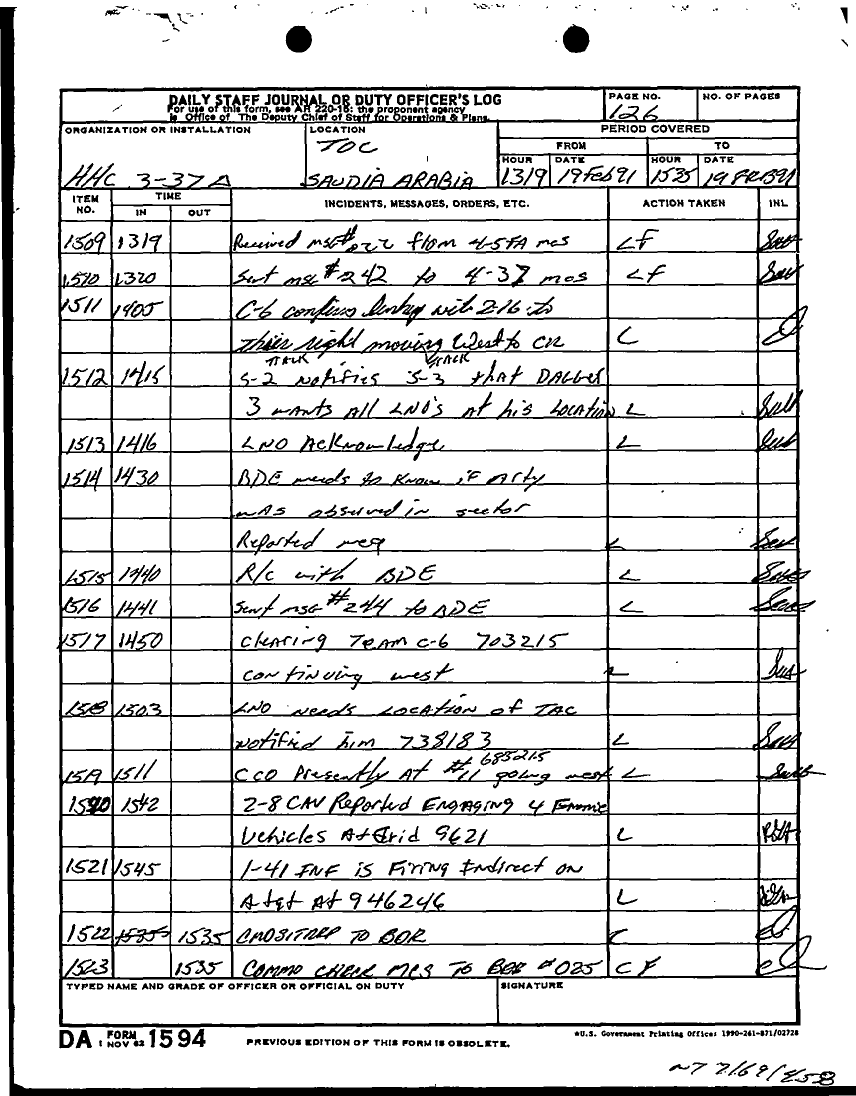 DAILY STAFF JOURNAL OR DUTY OFFICER'S LOG
For use of this form, see AR 220-15; the proponent agency
is Office of The Deputy Chief of Staff for Operations & Plans.
PAGE NO.
126
NO. OF PAGES
ORGANIZATION OR INSTALLATION
HHC 3-37 A
LOCATION
TOC
SAUDIA ARABIA
PERIOD COVERED
FROM
TO
HOUR DATE HOUR DATE
1319 19 Feb 91 1535 19 FEB 91
ITEM NO. TIME IN OUT INCIDENTS, MESSAGES, ORDERS, ETC. ACTION TAKEN INL
1509 1319 Received msg# 222 from 4-5FA mcs LF
1510 1320 Sent msg #242 to 4-37 mcs LF
1511 1405 C-6 confirms linkup with 2-16 to
their right moving West to CR L
1512 1415 S-2 TACK notifies S-3 TACK that DAGGER
3 wants All LNO's At his Location L
1513 1416 LNO Acknowledge L
1514 1430 BDE needs to know if Arty
was observed in sector
Reported neg L
1515 1440 R/c with BDE L
1516 1441 Sent msg #244 to BDE L
1517 1450 Clearing TEAM C-6 703215
continuing west L
1518 1503 LNO needs Location of TAC
notified him 738183 L
1519 1511 C CO Presently At #11 685215 going west L
1520 1542 2-8 CAV Reported Engaging 4 Enemie
Vehicles At Grid 9621 L
1521 1545 1-41 INF is Firing Indirect on
A tgt At 946246 L
1522 1535 1535 CMDSITREP TO BDE C
1523 1535 COMMO CHECK MCS TO BDE #025 C F
TYPED NAME AND GRADE OF OFFICER OR OFFICIAL ON DUTY
SIGNATURE
DA FORM 1 NOV 62 1594
PREVIOUS EDITION OF THIS FORM IS OBSOLETE.
*U.S. Government Printing Office: 1990-261-871/02728